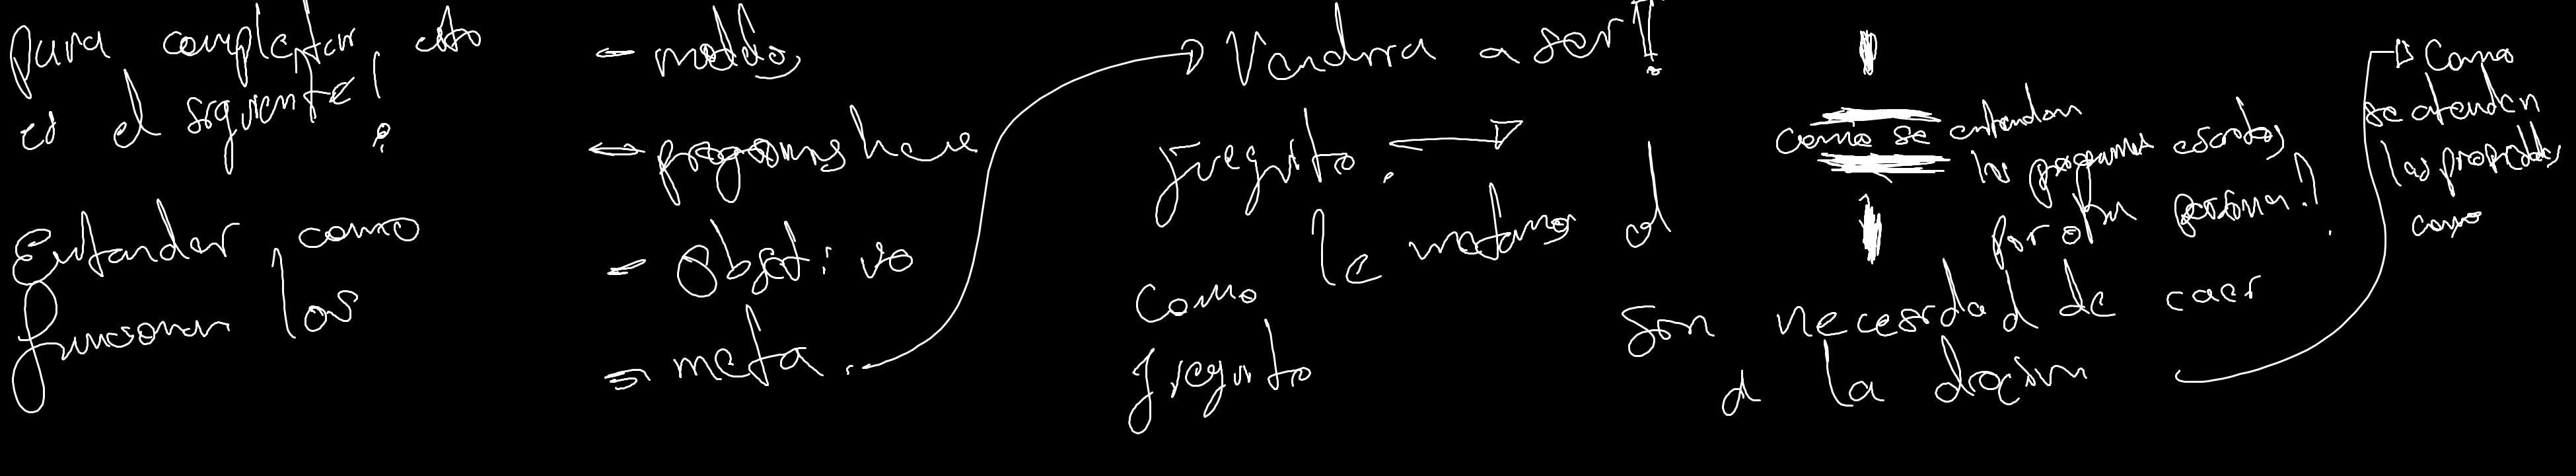 para completar esto
es el siguiente!
Entender como
funcionan los
- modelos
- programas have
- Objetivo
- meta.
Vendria a ser!!
jueguito.
le metamos el
como
jueguito
como se entenderan
los programas escritos
por otra persona!
sin necesidad de caer
a la
Como
se atenden
las propiedades
como